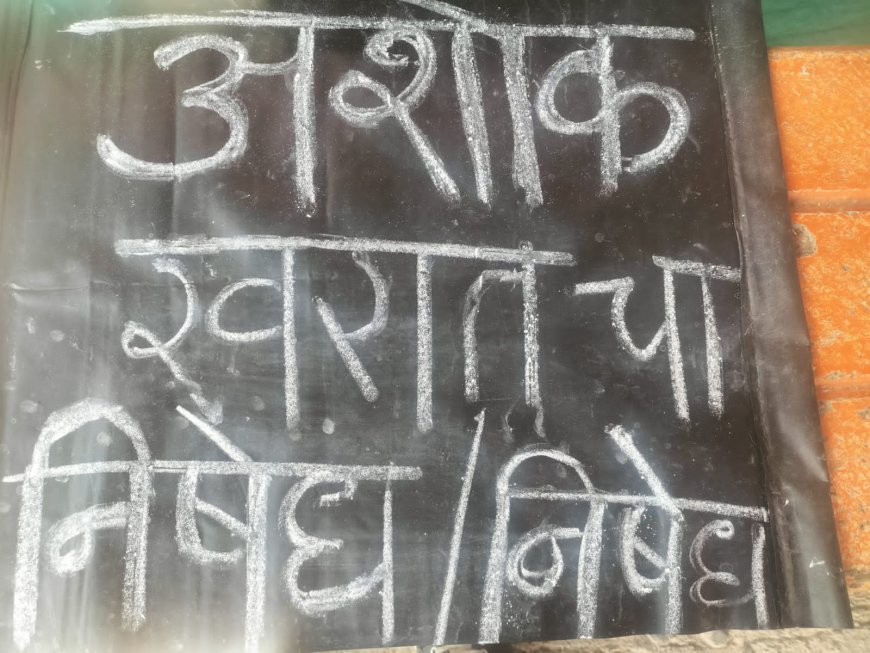 अशोक
खरात चा
निषेध / निषेध